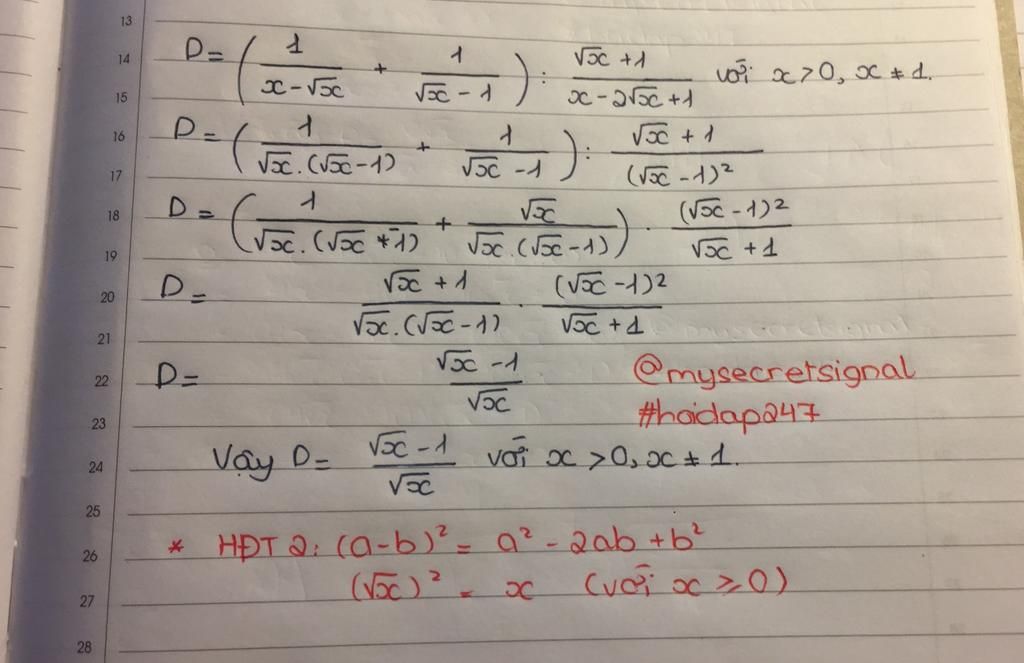 13
14 D = ( 1/(x - √x) + 1/(√x - 1) ) : (√x + 1)/(x - 2√x + 1) với x > 0, x ≠ 1.
15
16 D = ( 1/(√x.(√x - 1)) + 1/(√x - 1) ) : (√x + 1)/(√x - 1)²
17
18 D = ( 1/(√x.(√x - 1)) + √x/(√x.(√x - 1)) ) . (√x - 1)²/(√x + 1)
19
20 D = (√x + 1)/(√x.(√x - 1)) . (√x - 1)²/(√x + 1)
21
22 D = (√x - 1)/√x @mysecretsignal
23 #hoidap247
24 Vậy D = (√x - 1)/√x với x > 0, x ≠ 1.
25
26 * HĐT 2: (a - b)² = a² - 2ab + b²
27 (√x)² = x (với x ≥ 0)
28